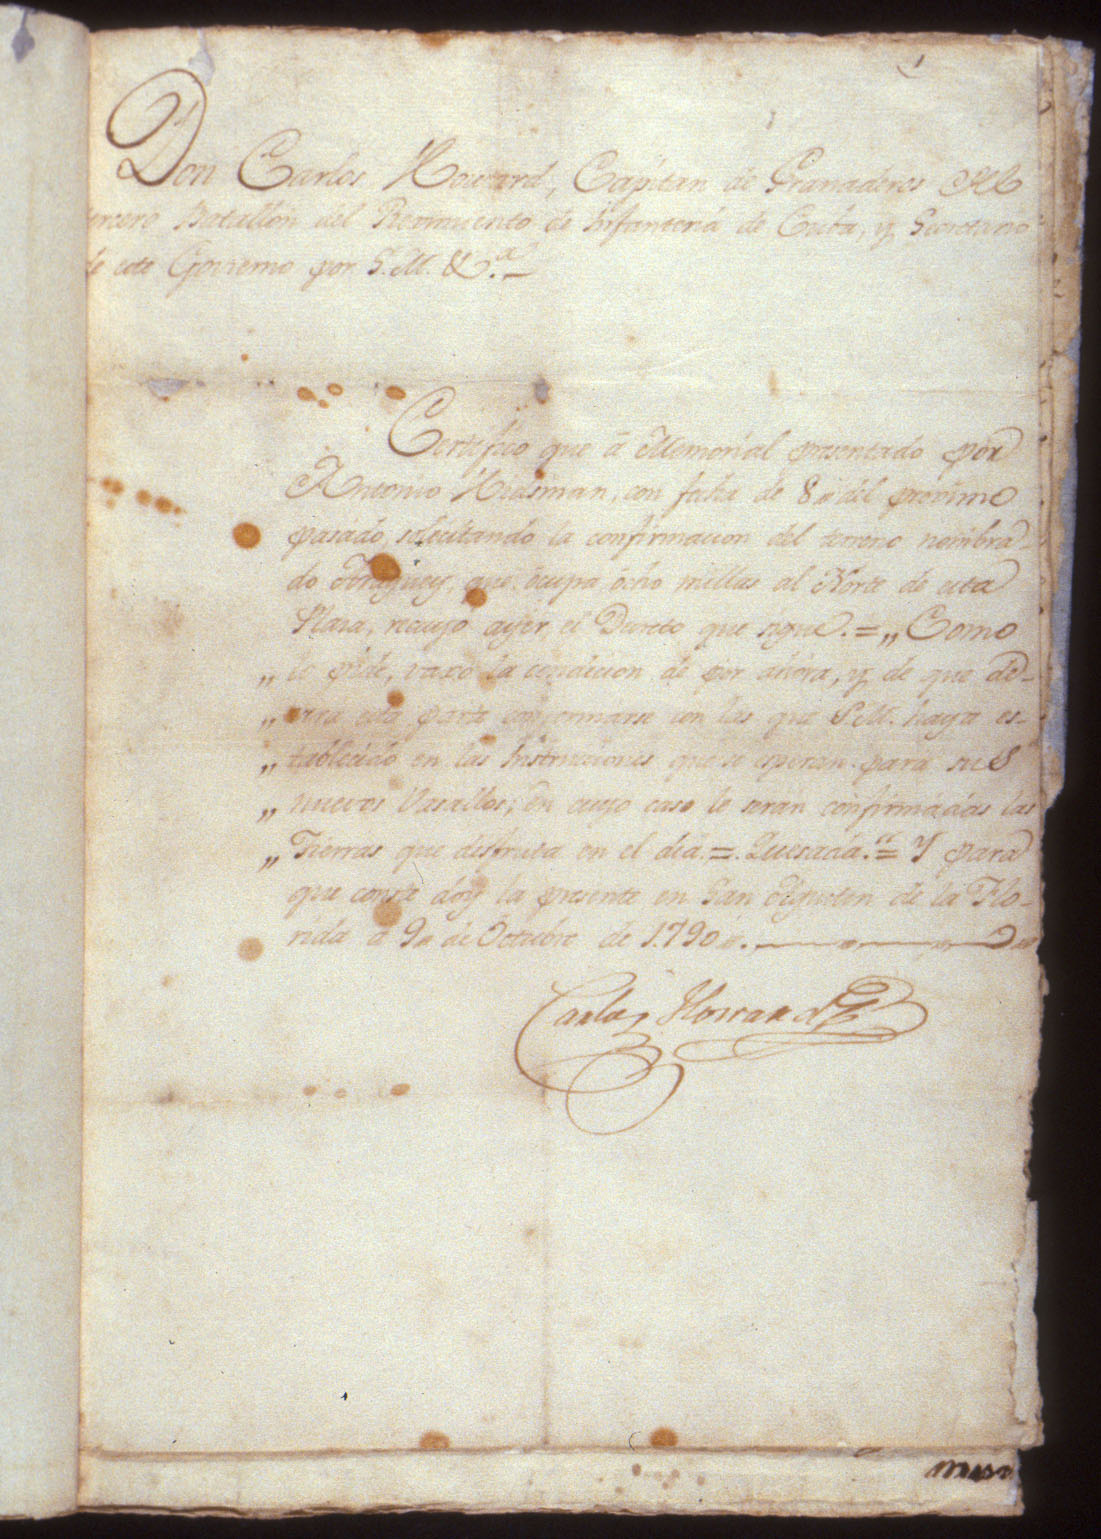 Don Carlos Howard, Capitan de Granaderos del
tercero Batallón del Regimiento de Infantería de Cuba, y Secretario
de este Govierno por S. M. &.ª
Certifico que á Memorial presentado por
Antonio Hinsman, con fecha de 8,, del proximo
pasado, solicitando la confirmacion del terreno nombra-
do que ocupa ócho millas al Norte de esta
Plaza, recayó ayer el Decreto que sigue. = ,, Como
,, lo pide, vaxo la condicion de por ahóra, y de que de-
,, verá esta parte conformarse con las que S. M. haya es-
,, tablecido en las Instrucciones que se esperan para sus
,, nuevos Vasallos; en cuyo caso le serán confirmadas las
,, Tierras que disfruta en el día. = Quesada.,, = Y para
que conste dóy la presente en San Agustin de la Flo-
rida á 9,, de Octubre de 1790,,.
Carlos Howard